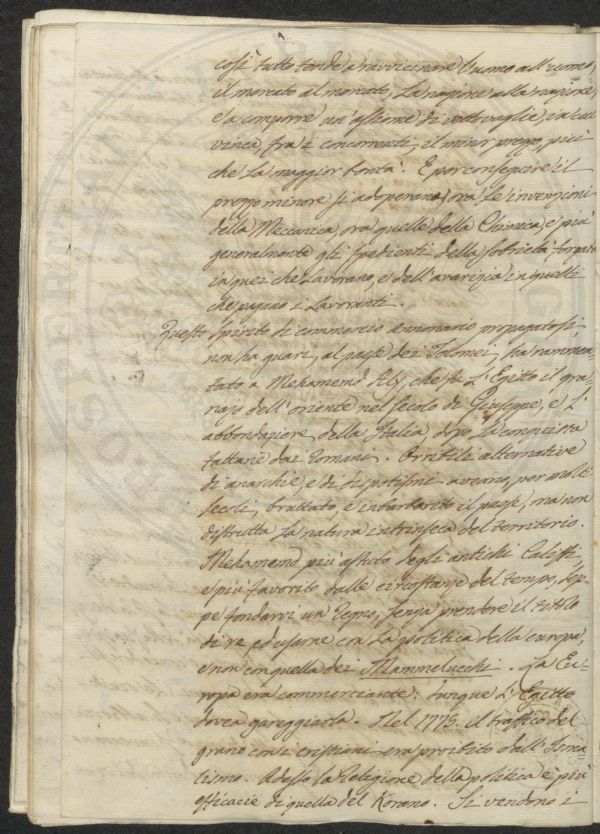 così tutto tende a ravvicinare l'uomo all'uomo,
il mercato al mercato, la nazione alla nazione,
e a comporre un' di vettovaglie, in cui
vinca, fra i concorrenti, il minor prezzo, più
che la maggior bontà. E per conseguire il
prezzo minore si adoperano, ora le invenzioni
della Meccanica, ora quelle della Chimica, e più
generalmente gli spedienti della sobrietà forzata
in quei che lavorano, e dell'avarizia in quelli
che pagano i lavoranti.
Questo spirito di commercio annonario propagatosi,
non ha guari, al paese dei Tolomei, ha rammen-
tato a Mehamemd Aly, che fu l'Egitto il gra-
najo dell'oriente nel secolo di Giuseppe, e l'
abbondaziere della Italia, dopo la conquista
fattane dai Romani. Orribili alternative
di anarchie, e di dispotismi aveano, per molti
secoli, bruttato, e imbarbarito il paese, ma non
distrutta la natura intrinseca del territorio.
Mehamemd più astuto degli antichi Califfi,
e più favorito dalle circostanze del tempo, sep-
pe fondarvi un Regno, senza prendere il titolo
di re, ed usarne con la politica della europa,
e non con quella dei Mammelucchi. La Eu-
ropa era commerciante: dunque l'Egitto
dovea gareggiarla. Nel 1775. il traffico del
grano con i cristiani era proibito dall'Isma-
cismo. Adesso la religione della politica è più
efficacie di quella del Korano. Si vendono i